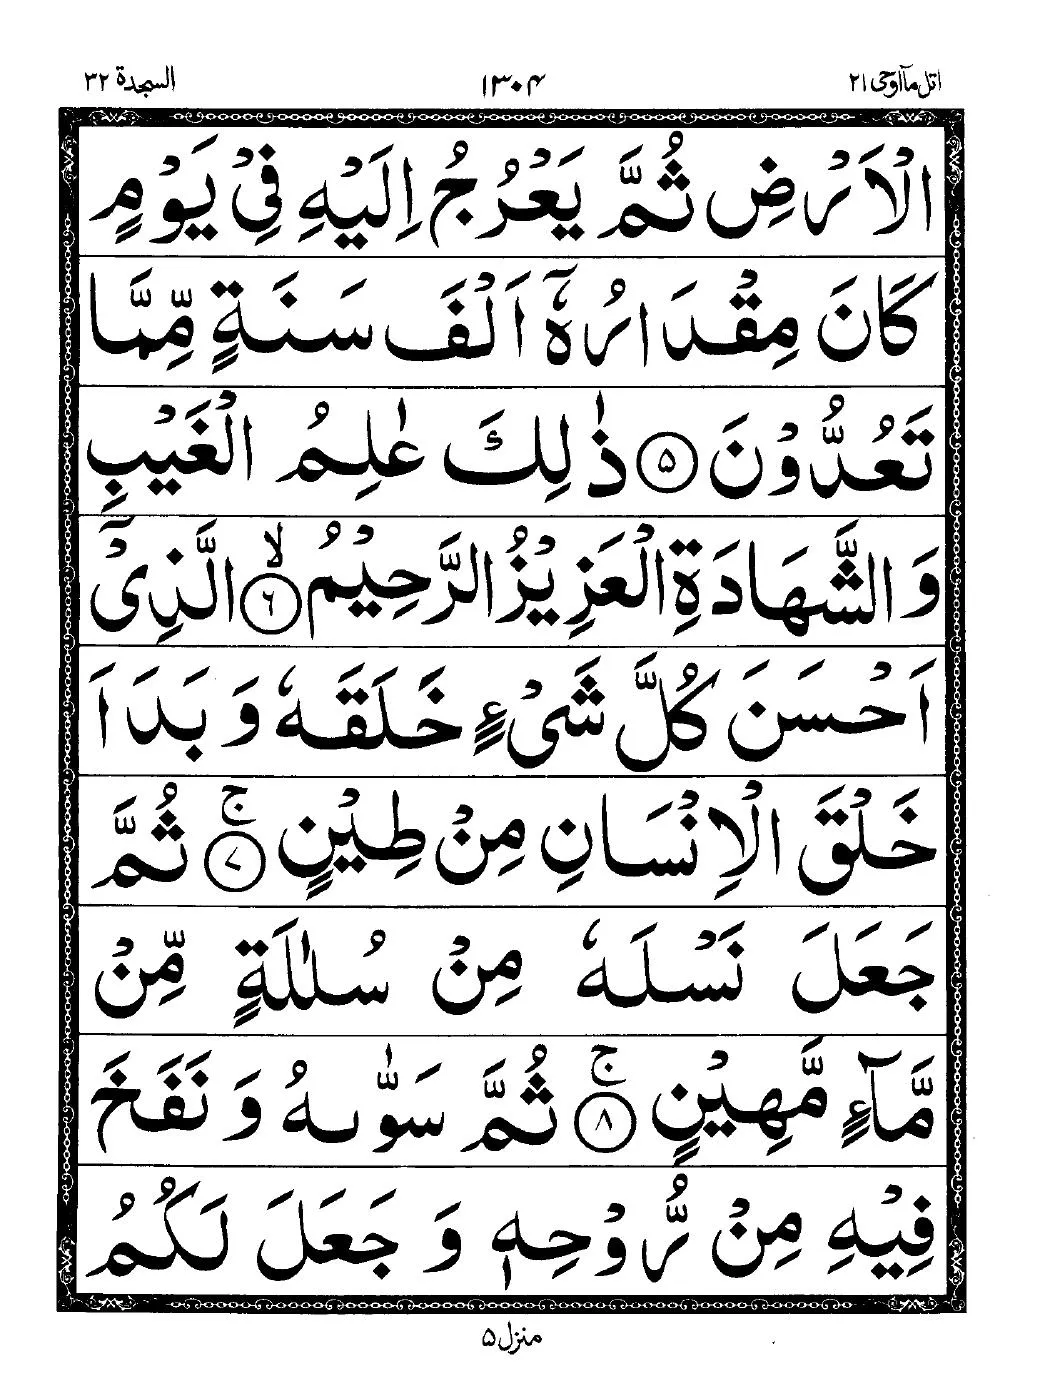 اتل مآاوحی ۲۱ ۱۳۰۴ السجدة ۳۲
الْاَرْضِ ثُمَّ يَعْرُجُ اِلَيْهِ فِيْ يَوْمٍ
كَانَ مِقْدَارُهٗۤ اَلْفَ سَنَةٍ مِّمَّا
تَعُدُّوْنَ ۵ ذٰلِكَ عٰلِمُ الْغَيْبِ
وَالشَّهَادَةِ الْعَزِيْزُ الرَّحِيْمُ ۶ۙ الَّذِيْۤ
اَحْسَنَ كُلَّ شَيْءٍ خَلَقَهٗ وَ بَدَاَ
خَلْقَ الْاِنْسَانِ مِنْ طِيْنٍ ۷ۚ ثُمَّ
جَعَلَ نَسْلَهٗ مِنْ سُلٰلَةٍ مِّنْ
مَّآءٍ مَّهِيْنٍ ۸ۚ ثُمَّ سَوّٰىهُ وَ نَفَخَ
فِيْهِ مِنْ رُّوْحِهٖ وَ جَعَلَ لَكُمُ
منزل ۵